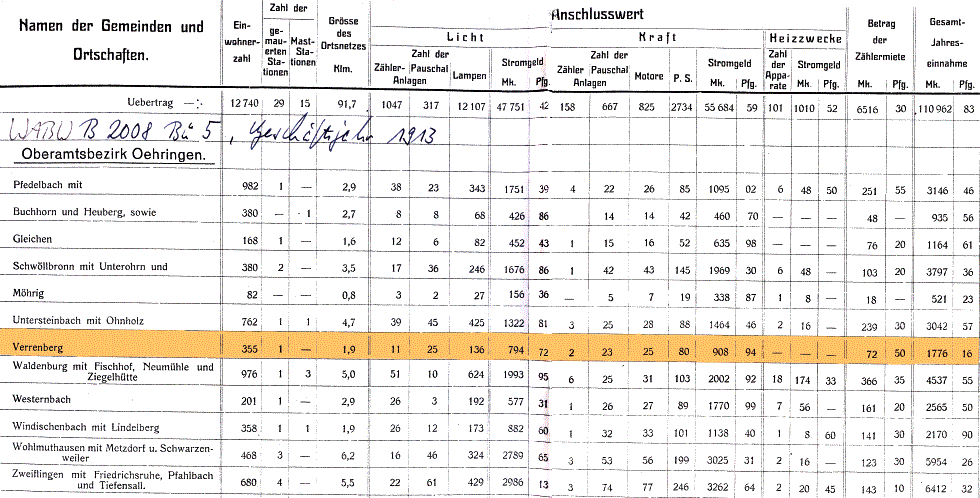 Namen der Gemeinden und Ortschaften. | Ein- wohner- zahl | Zahl der ge- mauerten Sta- tionen | Mast- Sta- tionen | Grösse des Ortsnetzes Klm. | Anschlusswert
Licht | Kraft | Heizzwecke | Betrag der Zählermiete | Gesamt- Jahres- einnahme
Zahl der Zähler- Pauschal Anlagen | Lampen | Stromgeld Mk. Pfg. | Zahl der Zähler Pauschal Anlagen | Motore | P. S. | Stromgeld Mk. Pfg. | Zahl der Appa- rate | Stromgeld Mk. Pfg. | Mk. Pfg. | Mk. Pfg.
Uebertrag —:- 12 740 29 15 91,7 1047 317 12 107 47 751 42 158 667 825 2734 55 684 59 101 1010 52 6516 30 110 962 83
WABW B 2008 Bü 5, Geschäftsjahr 1913
Oberamtsbezirk Oehringen.
Pfedelbach mit 982 1 — 2,9 38 23 343 1751 39 4 22 26 85 1095 02 6 48 50 251 55 3146 46
Buchhorn und Heuberg, sowie 380 — 1 2,7 8 8 68 426 86 14 14 42 460 70 — — — 48 — 935 56
Gleichen 168 1 — 1,6 12 6 82 452 43 1 15 16 52 635 98 — — — 76 20 1164 61
Schwöllbronn mit Unterohrn und 380 2 — 3,5 17 36 246 1676 86 1 42 43 145 1969 30 6 48 — 103 20 3797 36
Möhrig 82 — — 0,8 3 2 27 156 36 — 5 7 19 338 87 1 8 — 18 — 521 23
Untersteinbach mit Ohnholz 762 1 1 4,7 39 45 425 1322 81 3 25 28 88 1464 46 2 16 — 239 30 3042 57
Verrenberg 355 1 — 1,9 11 25 136 794 72 2 23 25 80 908 94 — — — 72 50 1776 16
Waldenburg mit Fischhof, Neumühle und
Ziegelhütte 976 1 3 5,0 51 10 624 1993 95 6 25 31 103 2002 92 18 174 33 366 35 4537 55
Westernbach 201 1 — 2,9 26 3 192 577 31 1 26 27 89 1770 99 7 56 — 161 20 2565 50
Windischenbach mit Lindelberg 358 1 1 1,9 26 12 173 882 60 1 32 33 101 1138 40 1 8 60 141 30 2170 90
Wohlmuthausen mit Metzdorf u. Schwarzen-
weiler 468 3 — 6,2 16 46 324 2789 65 3 53 56 199 3025 31 2 16 — 123 30 5954 26
Zweiflingen mit Friedrichsruhe, Pfahlbach
und Tiefensall. 680 4 — 5,5 22 61 429 2986 13 3 74 77 246 3262 64 2 20 45 143 10 6412 32